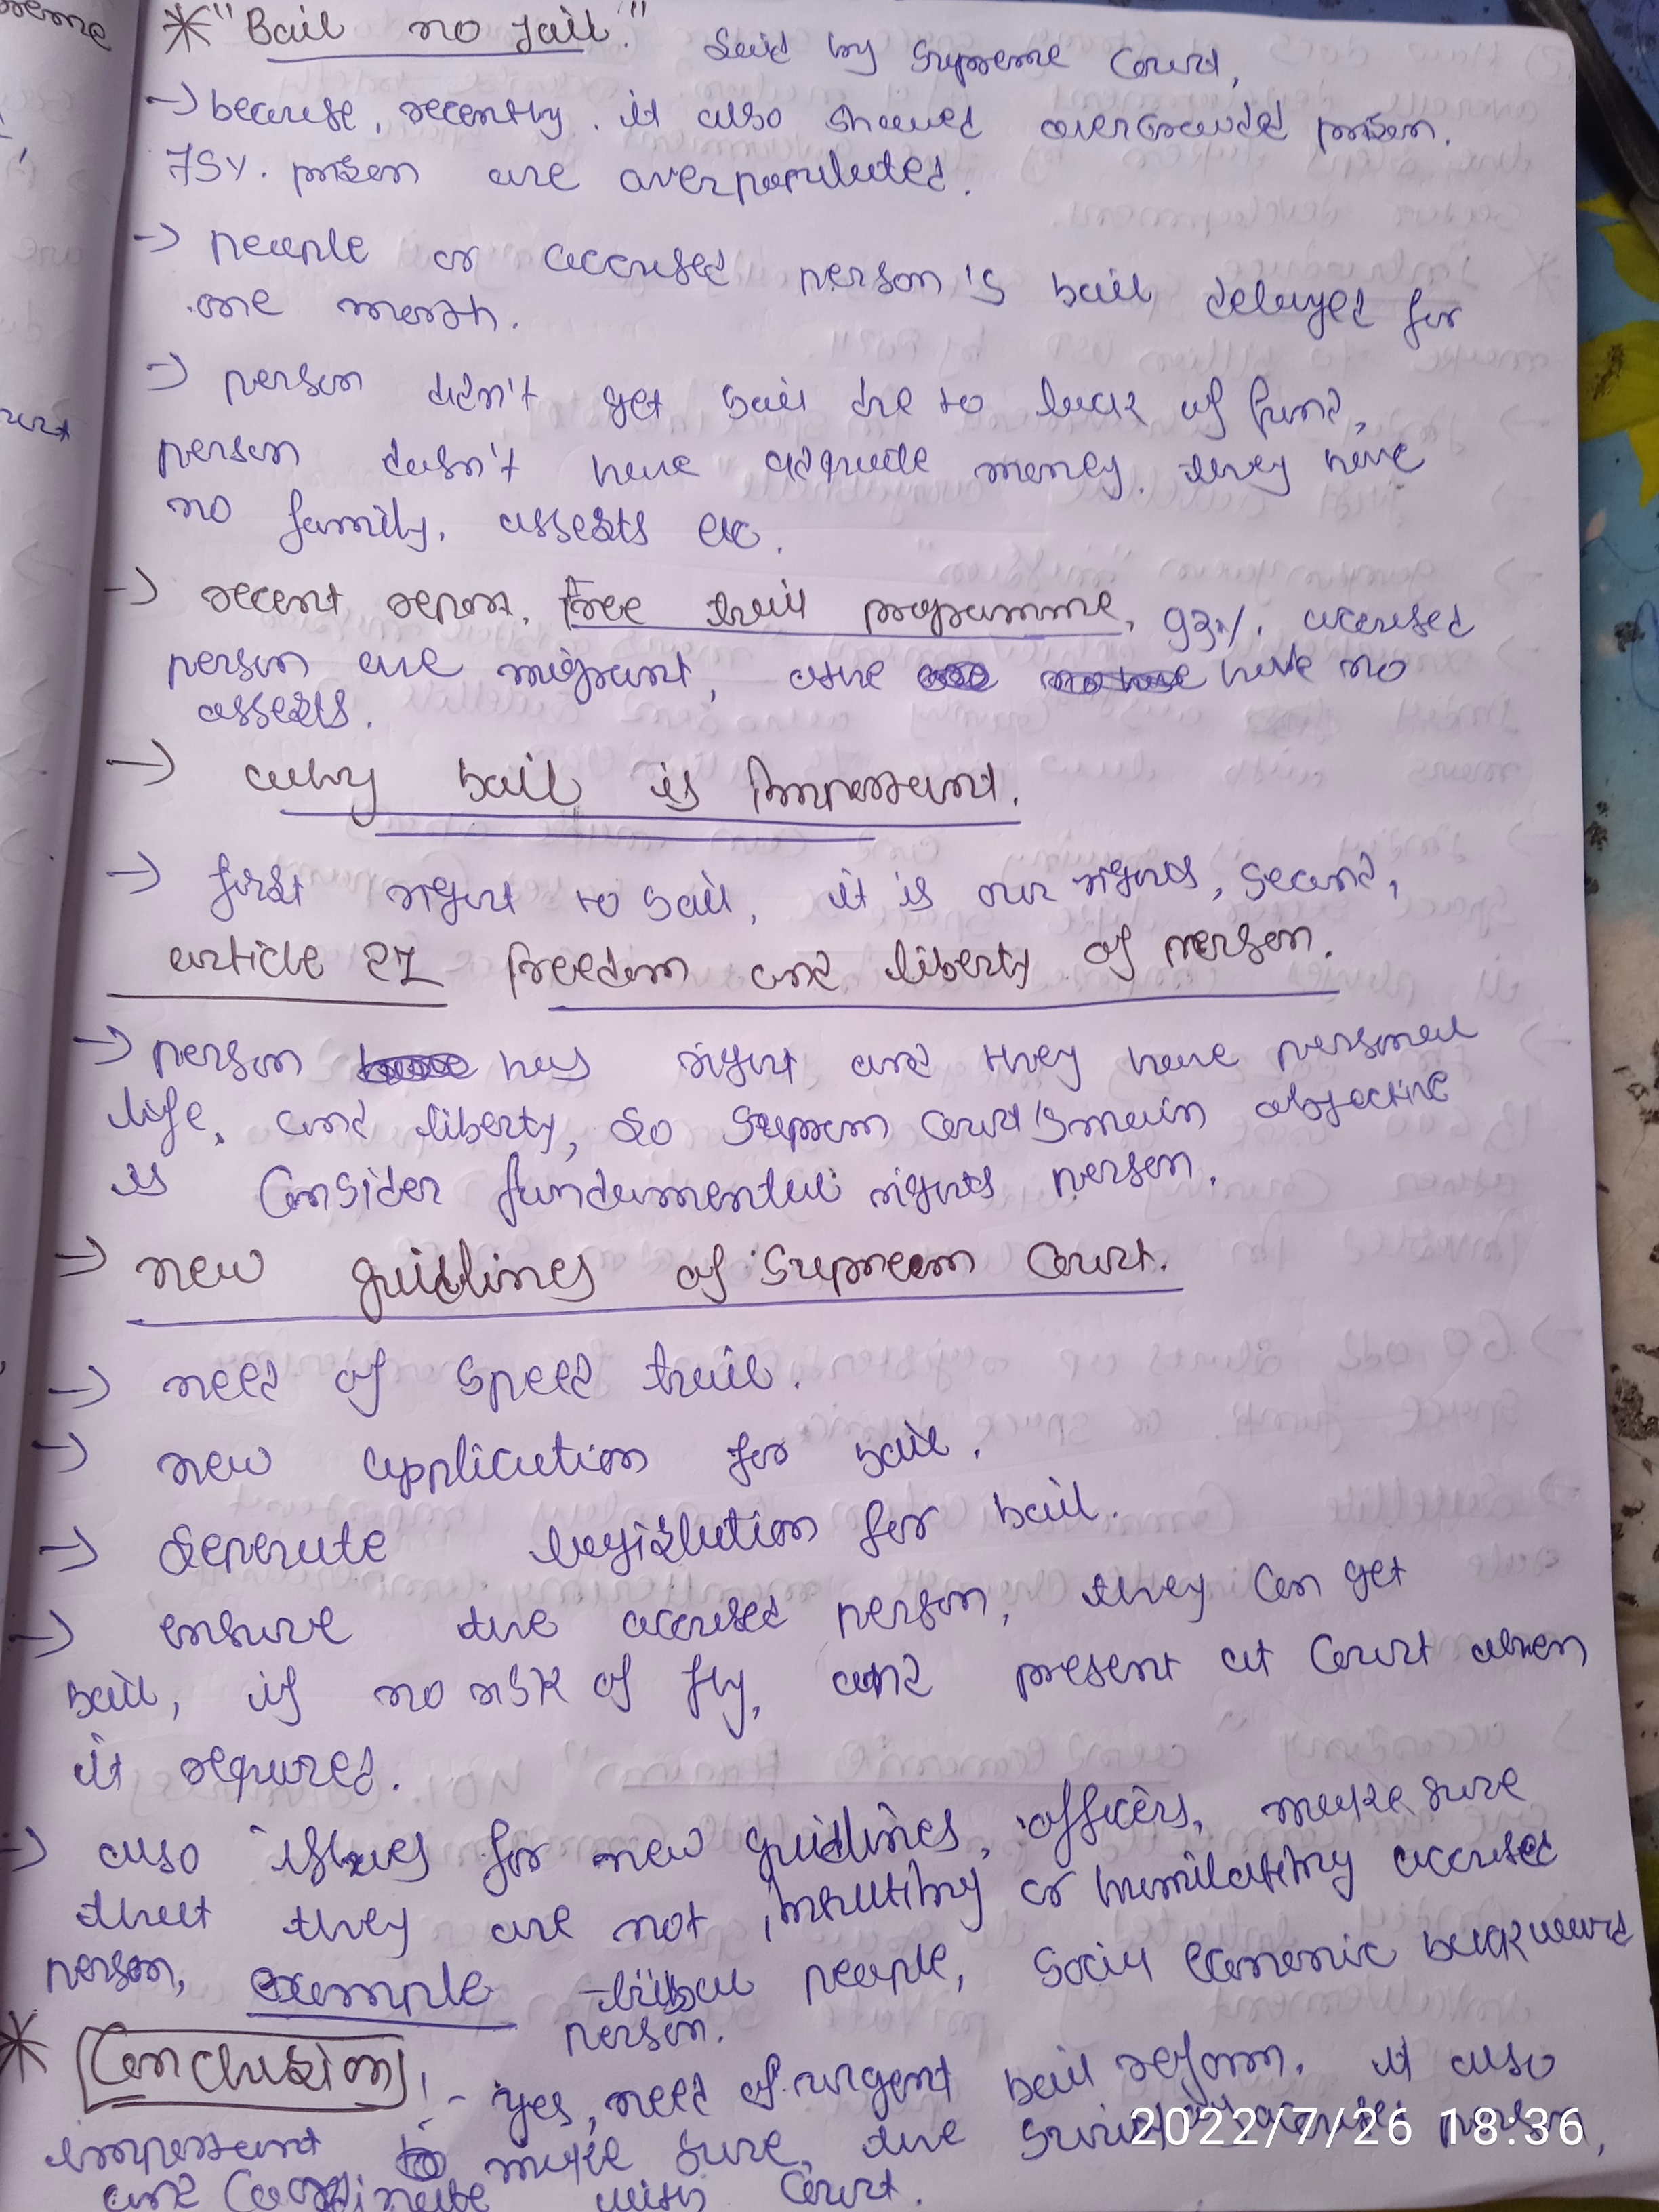 * "Bail no jail." Said by Supreme Court,
→ because, recently, it also showed overcrowded prison.
75%. prison are overpopulated.
→ people or accused person's bail delayed for
one month.
→ person didn't get bail due to lack of fund,
person dosn't have adquate money. they have
no family, assests etc.
→ recent report, free trail programme, 93%. accused
person are migrant, have no
assests.
→ why bail is Important.
→ first right to bail, it is our rights, second,
article 21 freedom and liberty of person.
→ person has right and they have personal
life, and liberty, so Suprem Court's main objective
is Consider fundamental rights person.
→ new guidlines of Supreem Court.
→ need of speed trail.
→ new application for bail.
→ Seperate legislation for bail.
→ ensure the accused person, they can get
bail, if no risk of fly, and present at Court when
it required.
→ also issues for new guidlines, officers, make sure
that they are not insulting or humilating accused
person, example - tribal people, Social economic backward
person.
* Conclusion :- Yes, need of urgent bail reform. it also
important to make sure, the person,
and with Court.
2022/7/26 18:36